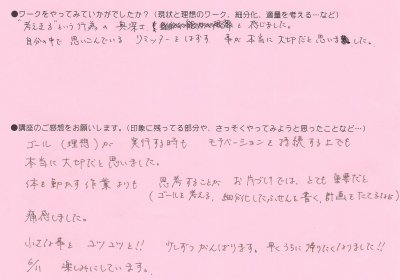 ●ワークをやってみていかがでしたか？（現状と理想のワーク、細分化、適量を考える…など）
"考える"という行為の奥深さ と感じました。
自分の中で思いこんでいるリミッターをはずす事が本当に大切だと思いました。
●講座のご感想をお願いします。（印象に残ってる部分や、さっそくやってみようと思ったことなど…）
ゴール（理想）が 実行する時も モチベーションを持続する上でも
本当に大切だと思いました。
体を動かす作業よりも 思考することが お片づけでは、とても重要だと
（ゴールを考える、細分化したふせんを書く、計画をたてるなど）
痛感しました。
小さな事をコツコツと!! 少しずつがんばります。早くうちに帰りたくなりました!!
6/11 楽しみにしています。